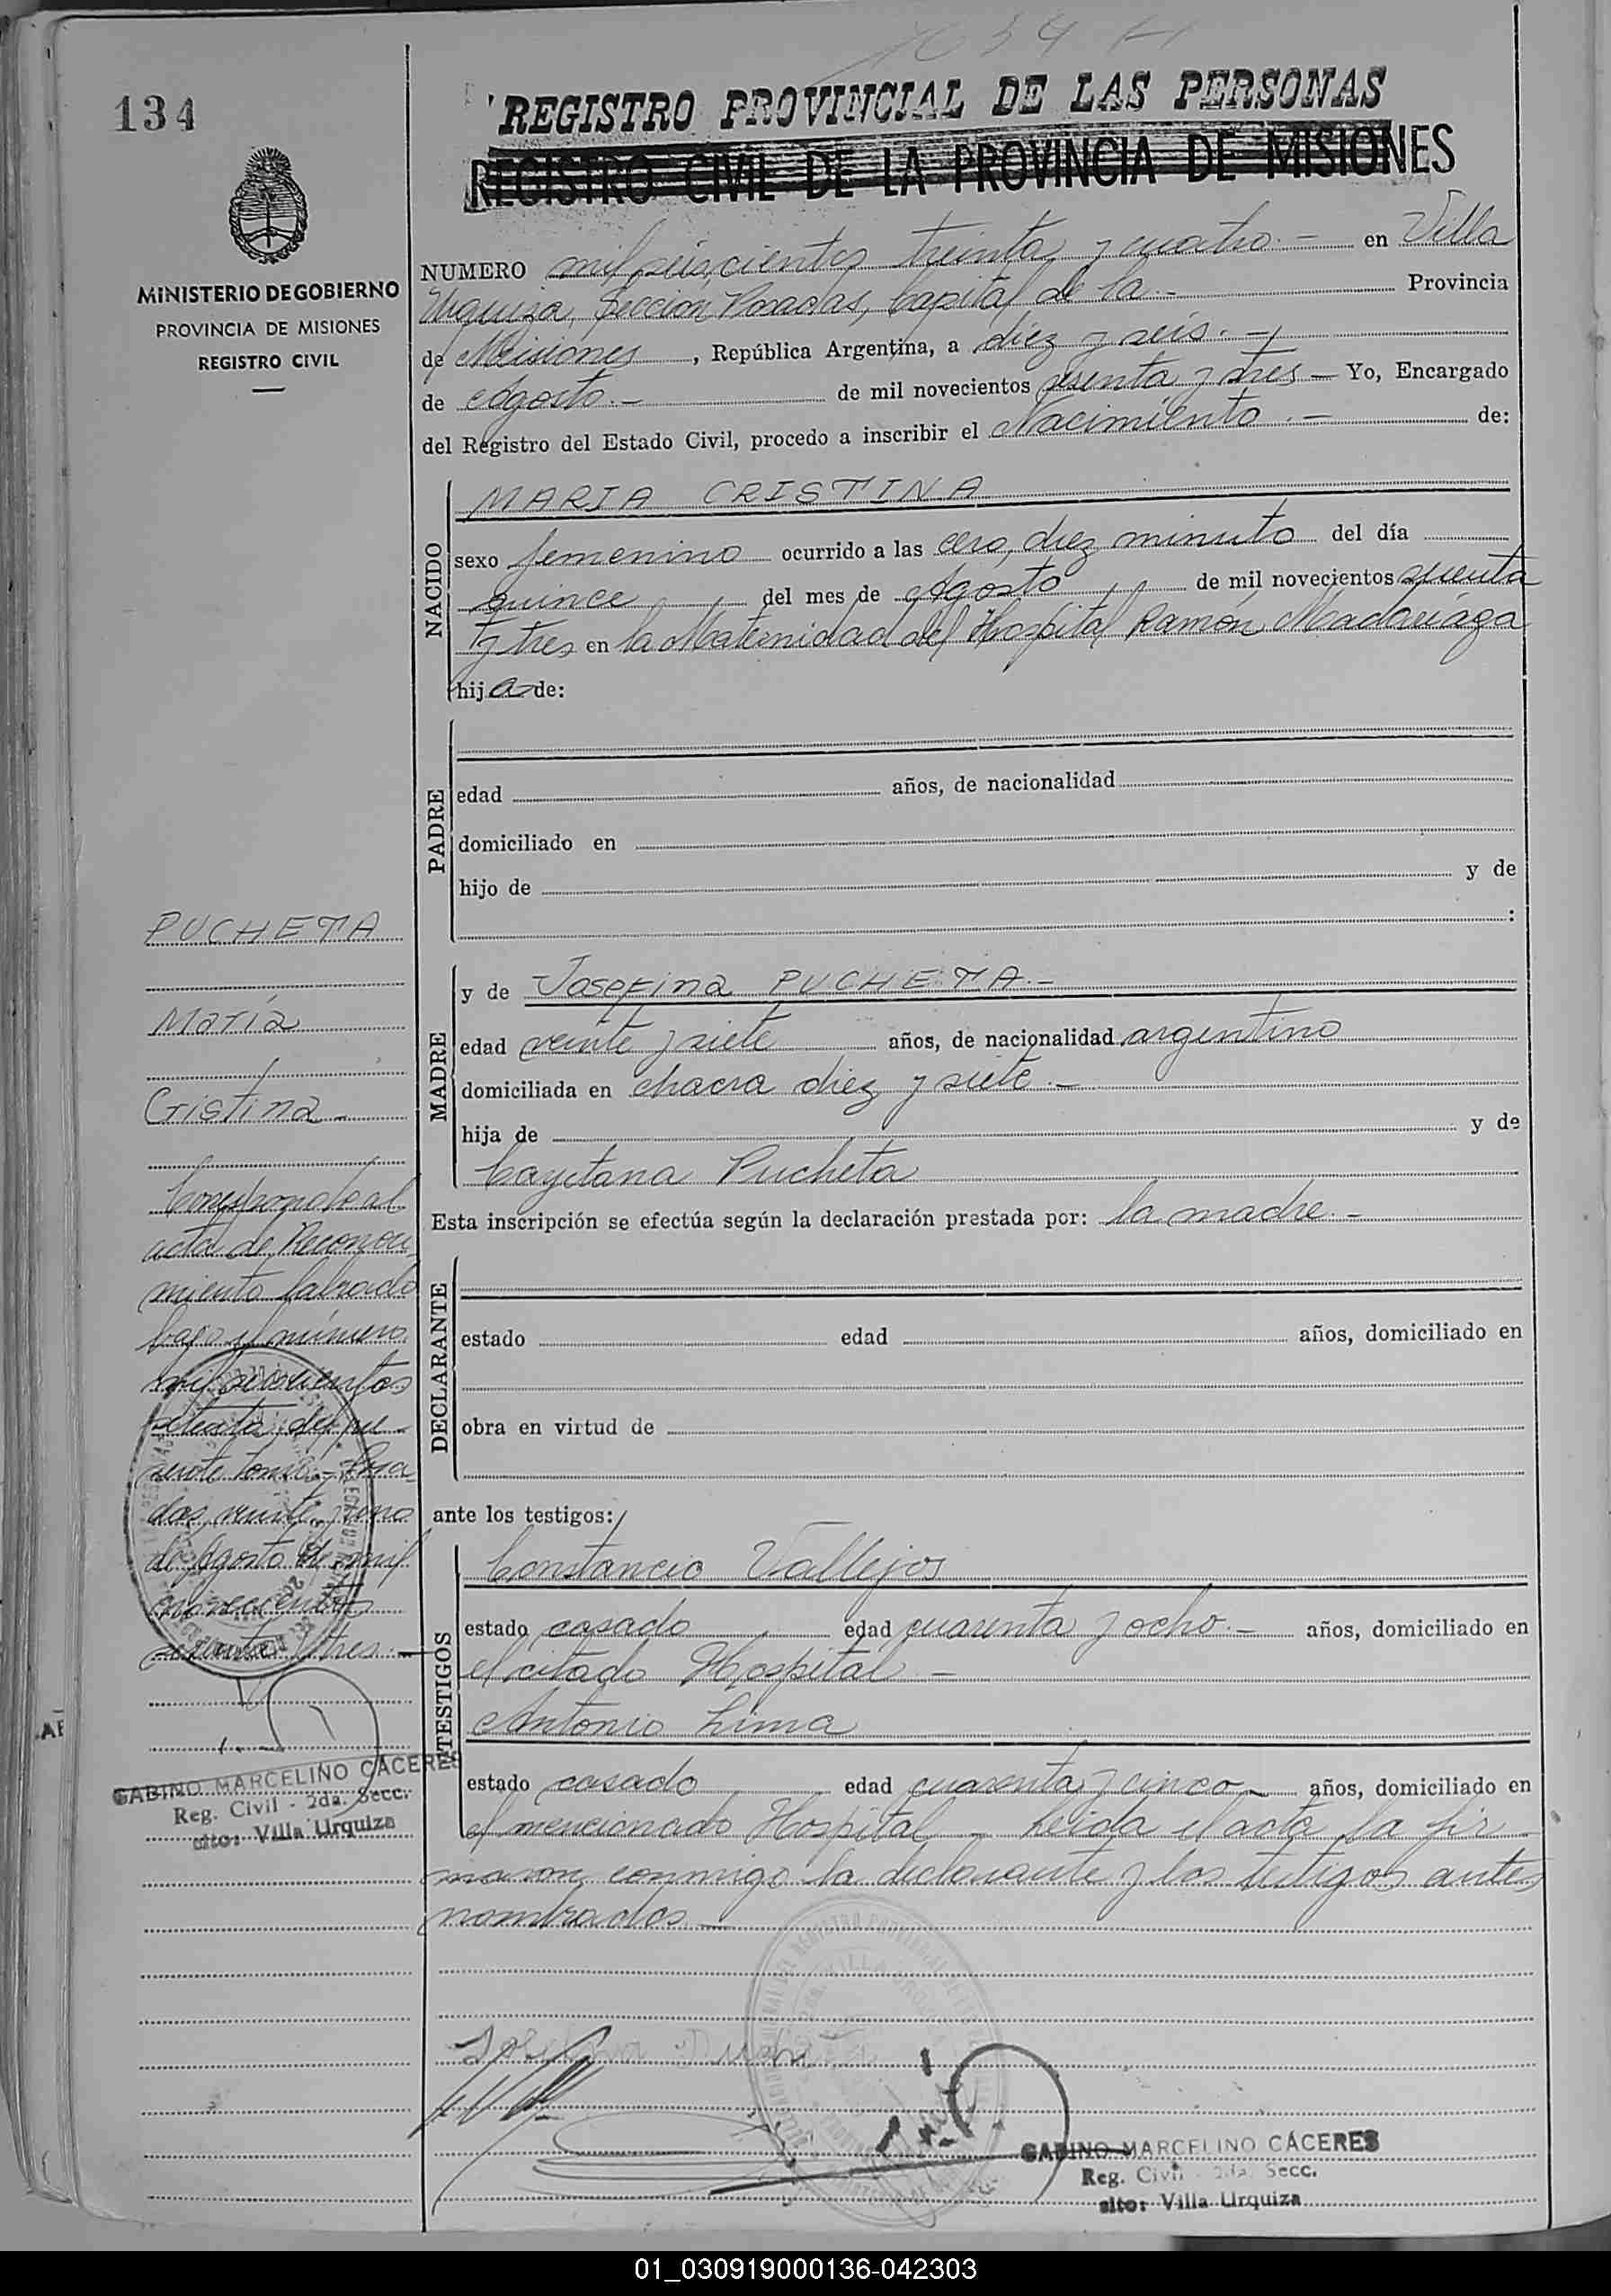 134
REGISTRO PROVINCIAL DE LAS PERSONAS
REGISTRO CIVIL DE LA PROVINCIA DE MISIONES
MINISTERIO DE GOBIERNO
PROVINCIA DE MISIONES
REGISTRO CIVIL
NUMERO mil seiscientos treinta y cuatro.- en Villa
Urquiza, Sección Posadas, Capital de la.- Provincia
de Misiones, República Argentina, a diez y seis.-
de Agosto.- de mil novecientos sesenta y tres- Yo, Encargado
del Registro del Estado Civil, procedo a inscribir el Nacimiento.- de:
NACIDO
MARIA CRISTINA
sexo femenino ocurrido a las cero, diez minuto del día
quince del mes de Agosto de mil novecientos sesenta
y tres en la Maternidad del Hospital Ramón Madariaga
hija de:
PADRE
edad años, de nacionalidad
domiciliado en
hijo de y de
:
PUCHETA
María
Cristina-
MADRE
y de Josefina PUCHETA.-
edad veinte y siete años, de nacionalidad argentino
domiciliada en chacra diez y siete.-
hija de y de
Cayetana Pucheta
Esta inscripción se efectúa según la declaración prestada por: la madre.-
Corresponde al
acta de Reconoci
miento labrado
bajo el número
mil seiscientos
setenta del pre-
sente tomo.- Posa-
das, veinte y uno
de Agosto de mil
novecientos
sesenta y tres.-
GABINO MARCELINO CACERES
Reg. Civil - 2da. Secc.
sito: Villa Urquiza
DECLARANTE
estado edad años, domiciliado en
obra en virtud de
ante los testigos:
TESTIGOS
Constancio Vallejos
estado casado edad cuarenta y ocho.- años, domiciliado en
el citado Hospital -
Antonio Lima
estado casado edad cuarenta y cinco- años, domiciliado en
el mencionado Hospital - Leida el acta la fir
maron conmigo la declarante y los testigos antes
nombrados-
Josefina Pucheta
GABINO MARCELINO CÁCERES
Reg. Civil - 2da. Secc.
sito: Villa Urquiza
01_030919000136-042303